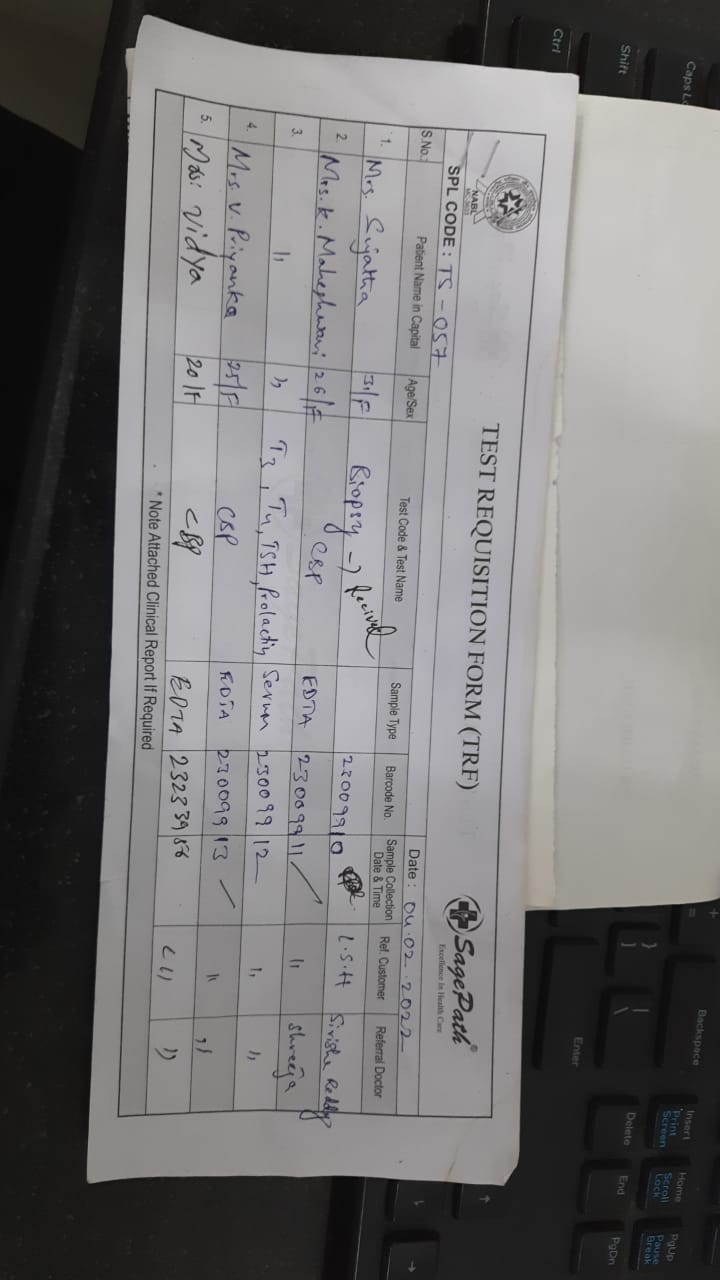 NABL
TEST REQUISITION FORM (TRF)
SagePath®
Excellence In Health Care
SPL CODE : TS - 057
Date : 04.02.2022
S.No. Patient Name in Capital Age/Sex Test Code & Test Name Sample Type Barcode No. Sample Collection Date & Time Ref. Customer Referral Doctor
1. Mrs. Sujatha 31/F Biopsy → Received 23009910 L.S.H Sirisha Reddy
2. Mrs. K. Maheshwari 26/F CBP EDTA 23009911 / 11 Shreeja
3. 11 11 T3, T4, TSH, Prolactin Serum 23009912 11 11
4. Mrs. V. Priyanka 25/F CBP EDTA 23009913 / 11 11
5. Vidya 20/F CBP EDTA 11
* Note Attached Clinical Report If Required
Caps L
Shift
Ctrl
Backspace
Enter
Insert
Print Screen
Delete
Home
Scroll Lock
End
PgUp
Pause Break
PgDn